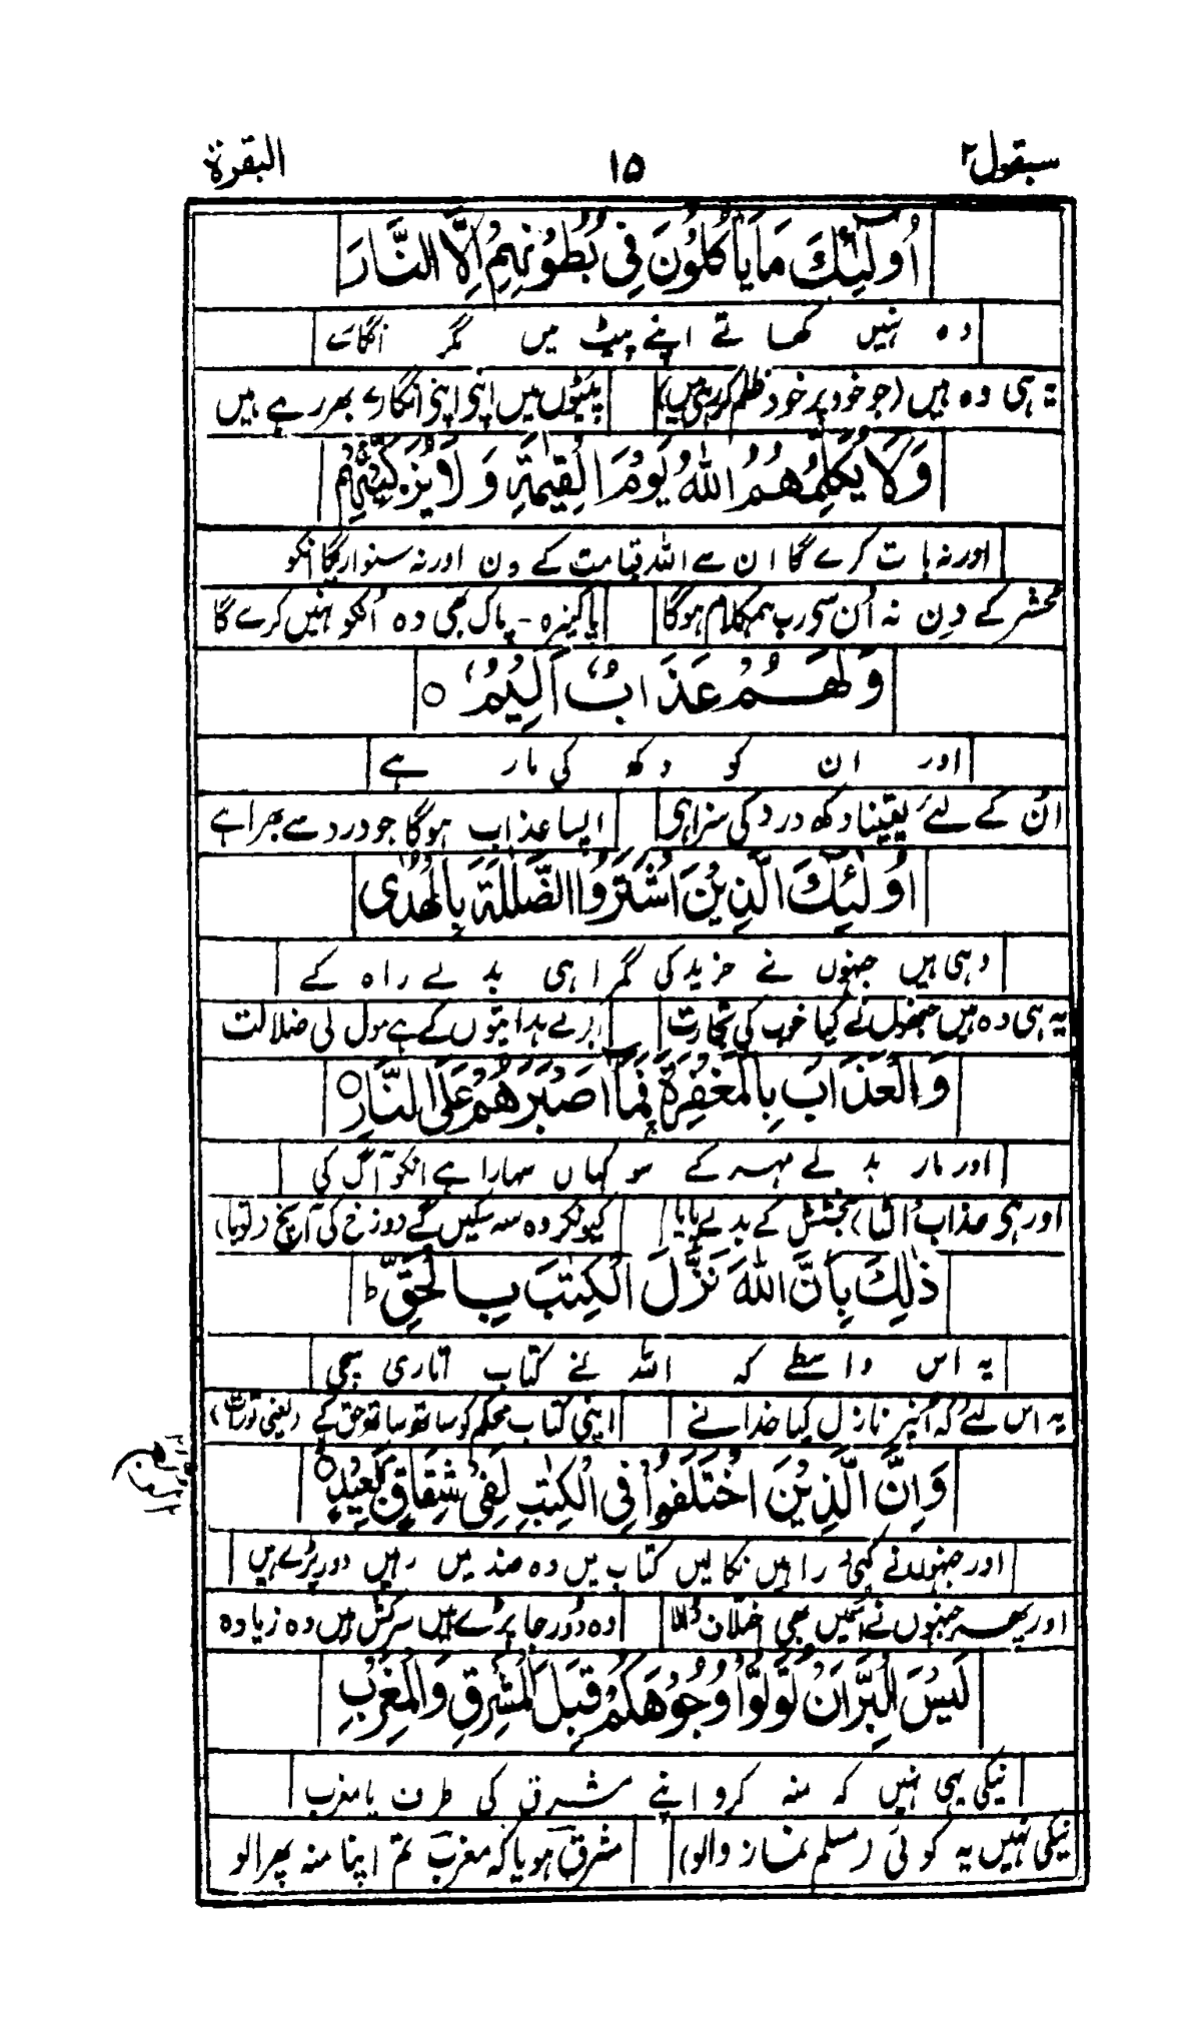 سیقول ۲ ۱۵ البقرة
اُولٰٓئِكَ مَا يَاْكُلُوْنَ فِيْ بُطُوْنِهِمْ اِلَّا النَّارَ
وہ نہیں کھاتے اپنے پیٹ میں مگر انگارے
یہ ہی وہ ہیں (جو خود پر خود ظلم کر رہی ہیں) پیٹوں میں اپنی اپنی انگارے بھر رہے ہیں
وَلَا يُكَلِّمُهُمُ اللّٰهُ يَوْمَ الْقِيٰمَةِ وَلَا يُزَكِّيْهِمْ
اور نہ بات کرے گا ان سے اللہ قیامت کے دن اور نہ سنواریگا انکو
محشر کے دن نہ اُن سی رب ہمکلام ہوگا پاکیزہ - پاک بھی وہ اُنکو نہیں کرے گا
وَلَهُمْ عَذَابٌ اَلِيْمٌ ○
اور ان کو دکھ کی مار ہے
اُن کے لئے یقینا دکھ درد کی سزا ہی ایسا عذاب ہوگا جو درد سے بھرا ہے
اُولٰٓئِكَ الَّذِيْنَ اشْتَرَوُا الضَّلٰلَةَ بِالْهُدٰى
وہی ہیں جنہوں نے خرید کی گمراہی بدلے راہ کے
یہ ہی وہ ہیں جنھوں نے کیا خوب کی تجارت بدلے ہدایتوں کے ہے مول لی ضلالت
وَالْعَذَابَ بِالْمَغْفِرَةِ فَمَآ اَصْبَرَهُمْ عَلَى النَّارِ ○
اور مار بدلے مہر کے سو کہاں سہارا ہے انکو آگ کی
اور ہی عذاب اُلٹا) بخشش کے بدلے پایا کیونکر وہ سہ سکیں گے دوزخ کی آریخ
ذٰلِكَ بِاَنَّ اللّٰهَ نَزَّلَ الْكِتٰبَ بِالْحَقِّ ط
یہ اس واسطے کہ اللہ نے کتاب اتاری سچی
یہ اس لئے کہ نازل کیا خدا نے اپنی کتاب محکم کو ساتھ ساتھ حق کے (یعنی تورات)
وَاِنَّ الَّذِيْنَ اخْتَلَفُوْا فِي الْكِتٰبِ لَفِيْ شِقَاقٍ بَعِيْدٍ ○
اور جنہوں نے کئی راہیں نکالیں کتاب میں وہ ضد میں رہیں دور پڑے ہیں
اور پھر جنہوں نے اسمیں بھی اختلاف ڈالا وہ دُور جا پڑے ہیں سرکش ہیں وہ زیادہ
لَيْسَ الْبِرَّ اَنْ تُوَلُّوْا وُجُوْهَكُمْ قِبَلَ الْمَشْرِقِ وَالْمَغْرِبِ
نیکی یہی نہیں کہ منہ کرو اپنے مشرق کی طرف یا مغرب
نیکی نہیں یہ کوئی (مسلم نماز والو) مشرق ہو یا کہ مغرب تم اپنا منہ پھرا لو